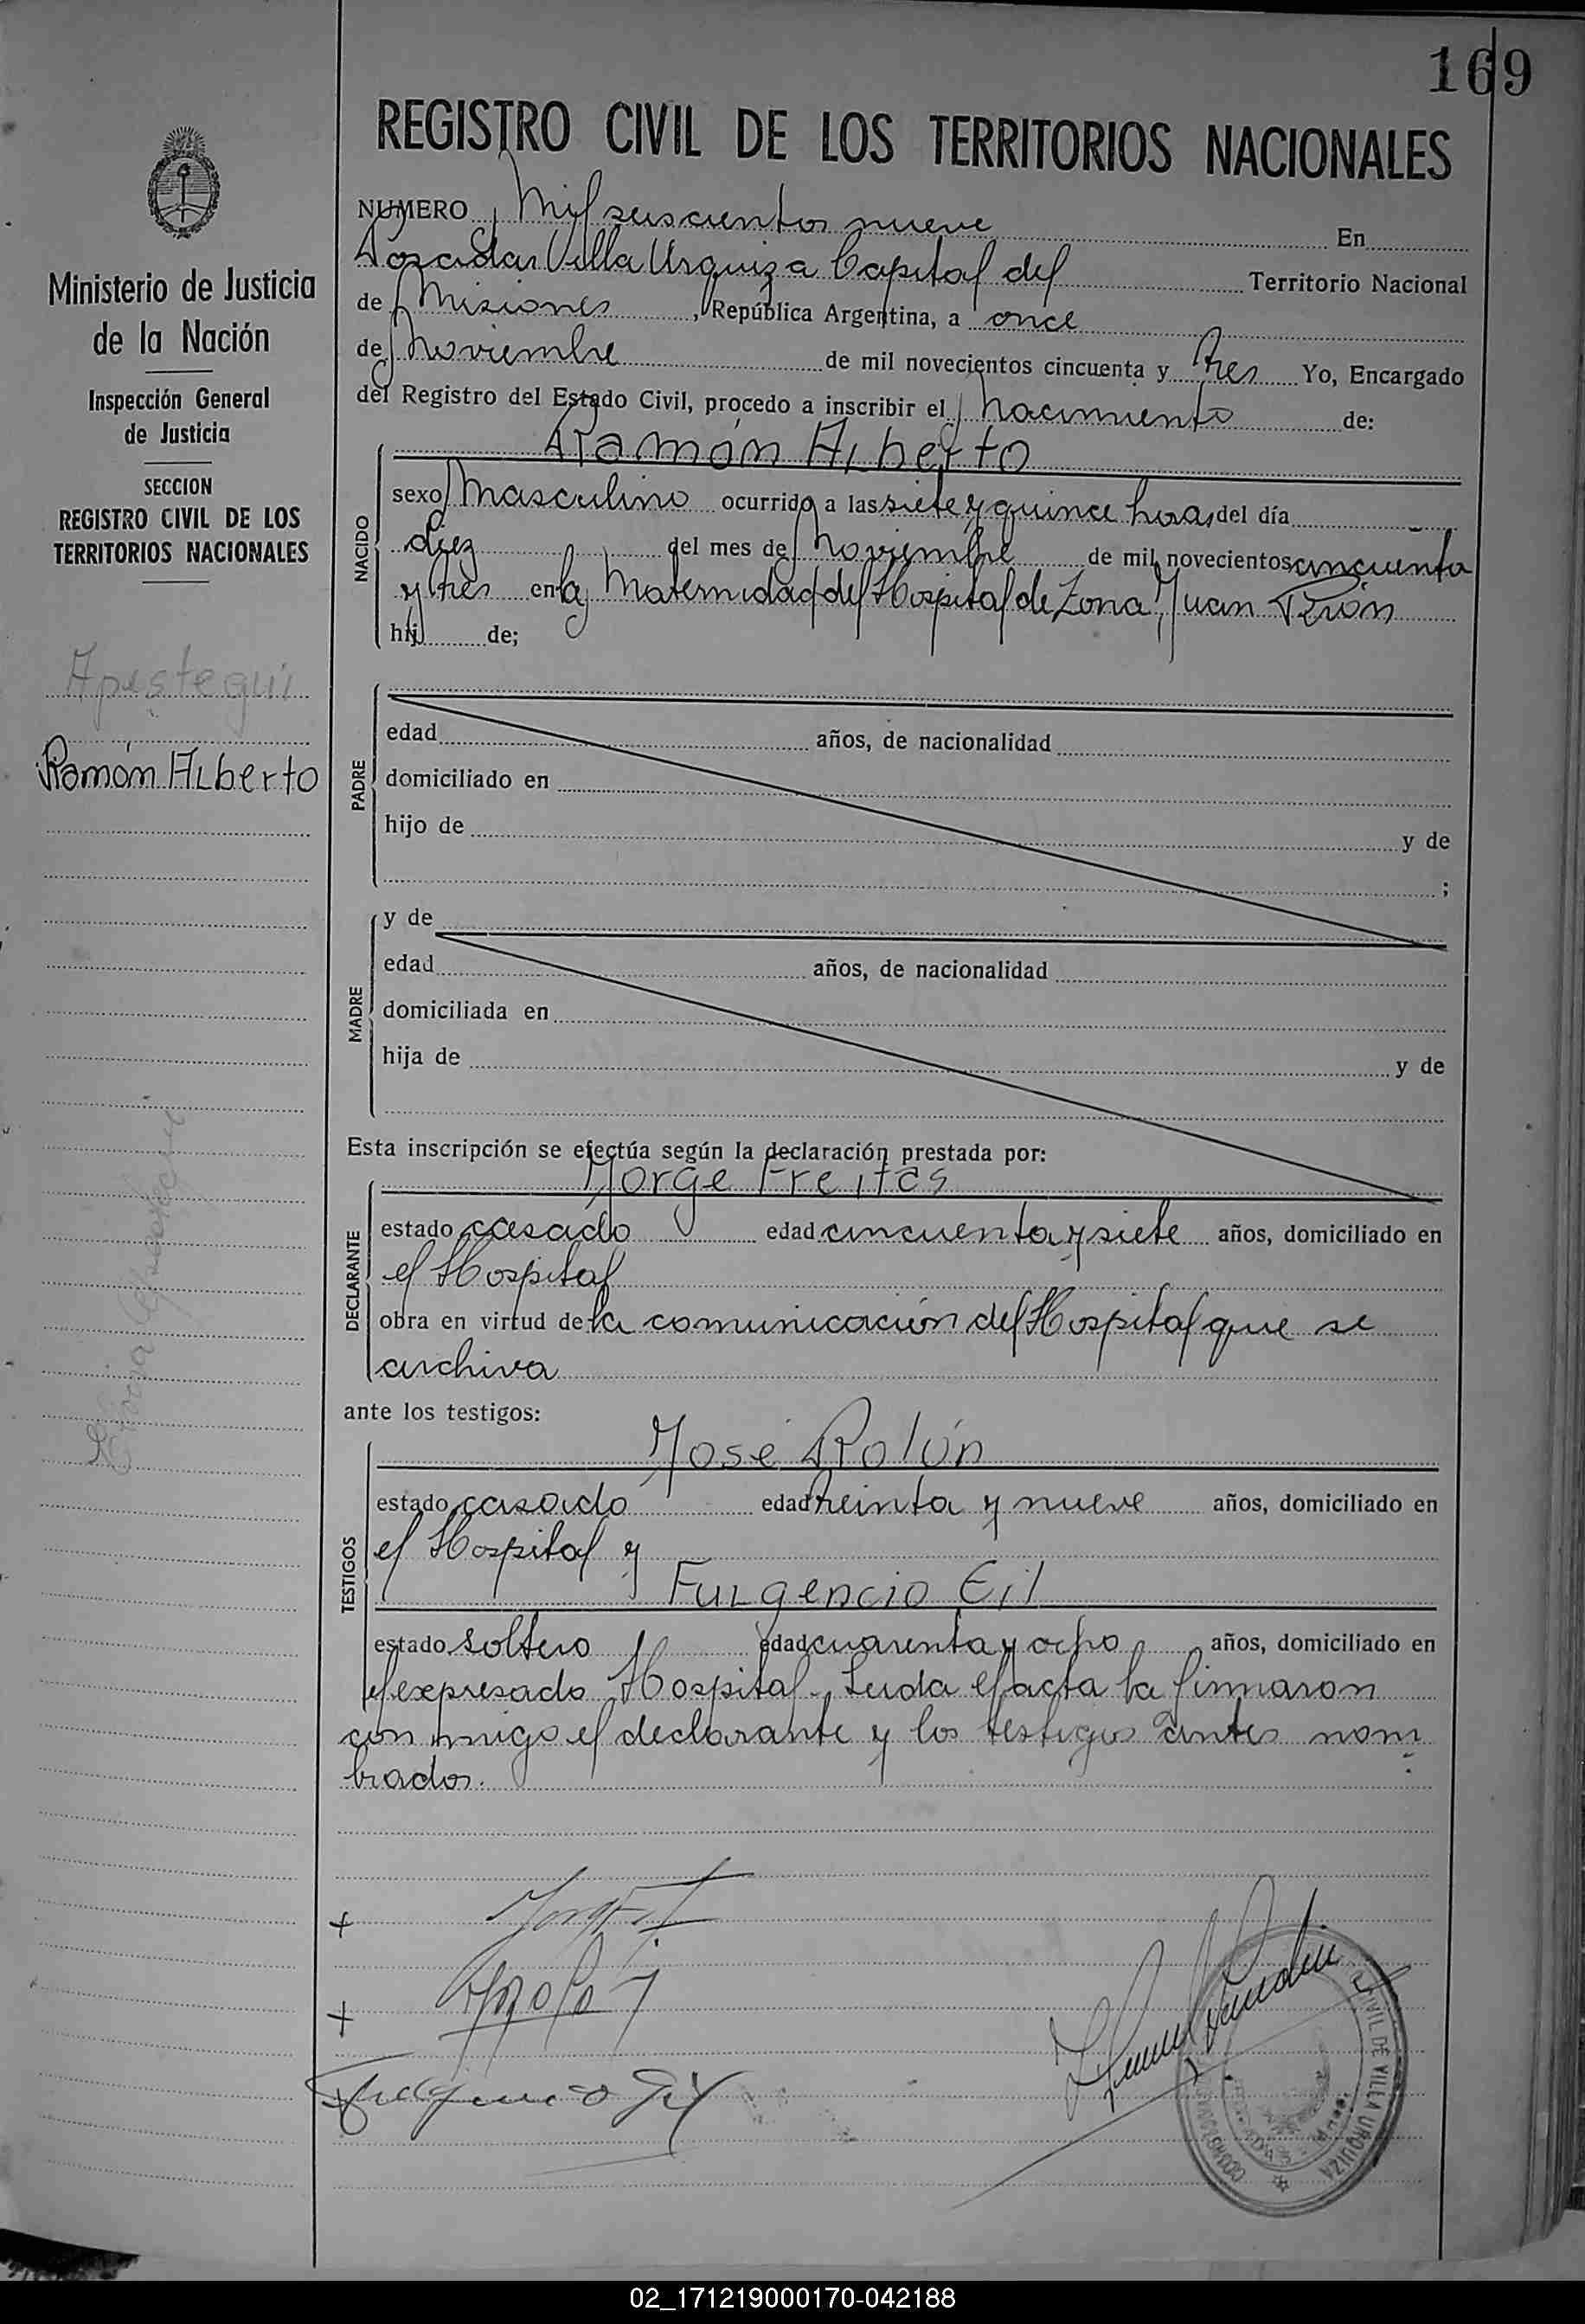 169
REGISTRO CIVIL DE LOS TERRITORIOS NACIONALES
Ministerio de Justicia
de la Nación
Inspección General
de Justicia
SECCION
REGISTRO CIVIL DE LOS
TERRITORIOS NACIONALES
Apestegui
Ramón Alberto
NUMERO Mil seiscientos nueve En
Posadas Villa Urquiza Capital del Territorio Nacional
de Misiones, República Argentina, a once
de Noviembre de mil novecientos cincuenta y tres Yo, Encargado
del Registro del Estado Civil, procedo a inscribir el Nacimiento de:
Ramón Alberto
NACIDO
sexo Masculino ocurrido a las siete y quince horas del día
diez del mes de Noviembre de mil novecientos cincuenta
y tres en la Maternidad del Hospital de Zona Juan Perón
hij de;
PADRE
edad años, de nacionalidad
domiciliado en
hijo de y de
;
MADRE
y de
edad años, de nacionalidad
domiciliada en
hija de y de
Esta inscripción se efectúa según la declaración prestada por:
Jorge Freitas
DECLARANTE
estado casado edad cincuenta y siete años, domiciliado en
el Hospital
obra en virtud de la comunicación del Hospital que se
archiva
ante los testigos:
José Rolón
TESTIGOS
estado casado edad treinta y nueve años, domiciliado en
el Hospital y
Fulgencio Gil
estado soltero edad cuarenta y ocho años, domiciliado en
el expresado Hospital. Leida el acta la firmaron
con migo el declarante y los testigos antes nom
brados.
Fulgencio Gil
CIVIL DE VILLA URQUIZA
POSADAS
02_171219000170-042188